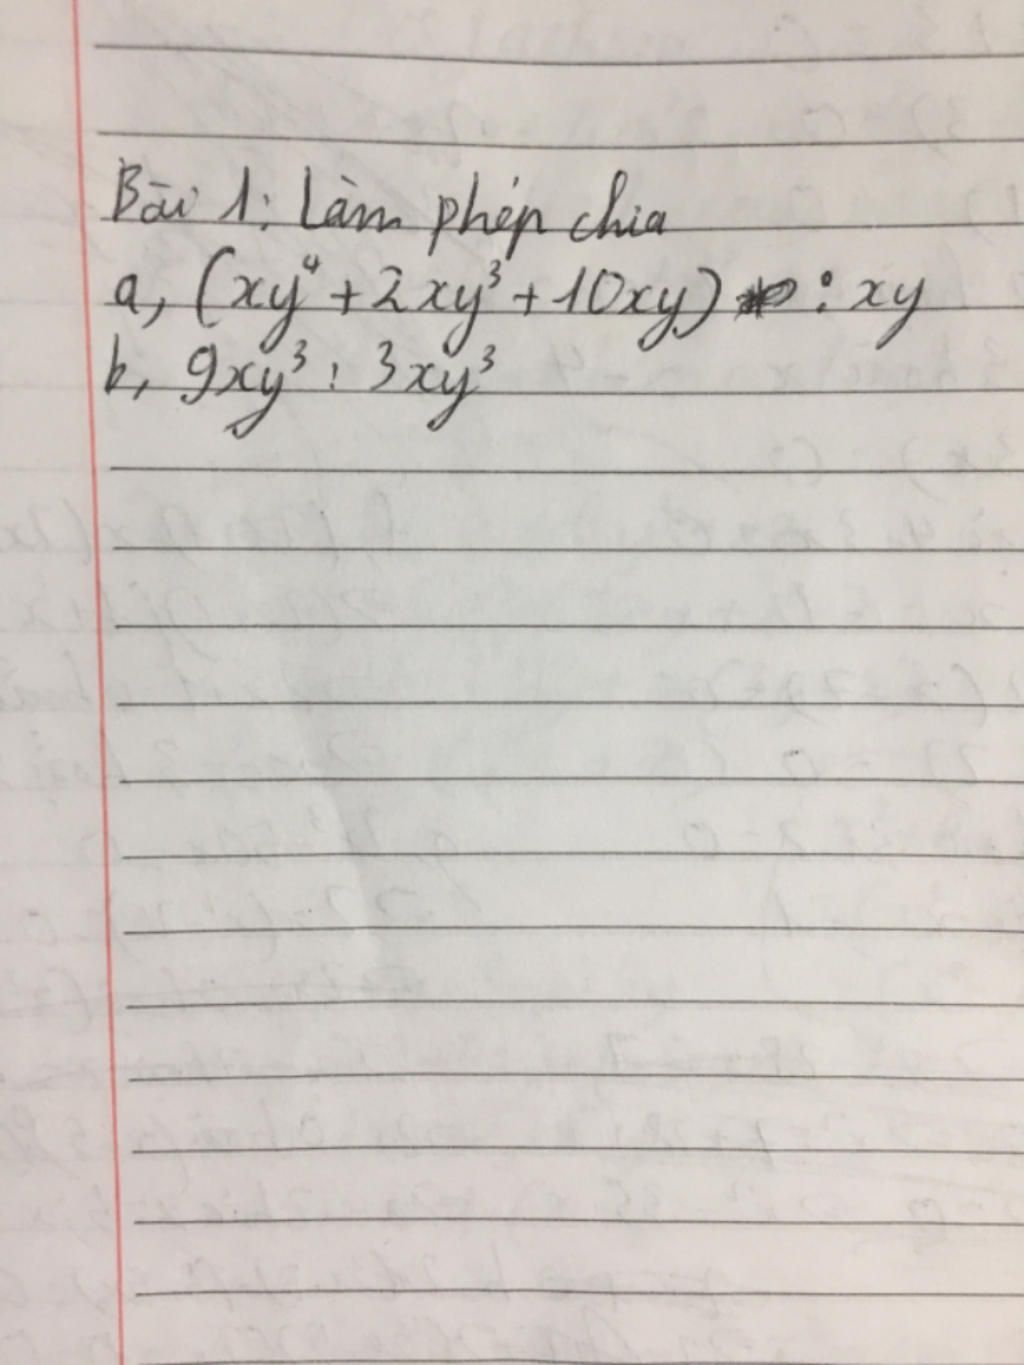 Bài 1: Làm phép chia
a, (xy⁴ + 2xy³ + 10xy) : xy
b, 9xy³ : 3xy³